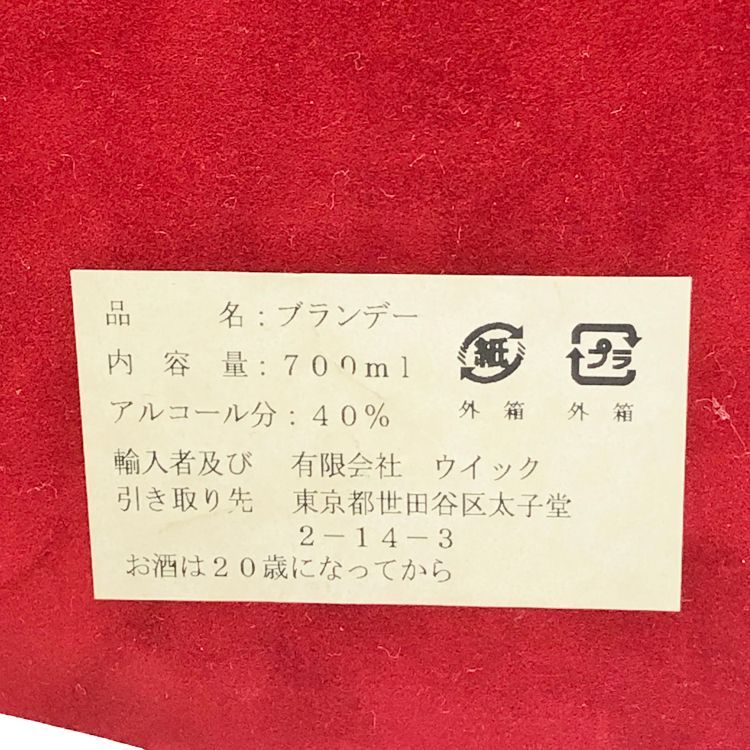 品　　名：ブランデー
内 容 量：７００ｍｌ
アルコール分：４０％
紙 プラ
外 箱 外 箱
輸入者及び　有限会社　ウイック
引き取り先　東京都世田谷区太子堂
２－１４－３
お酒は２０歳になってから